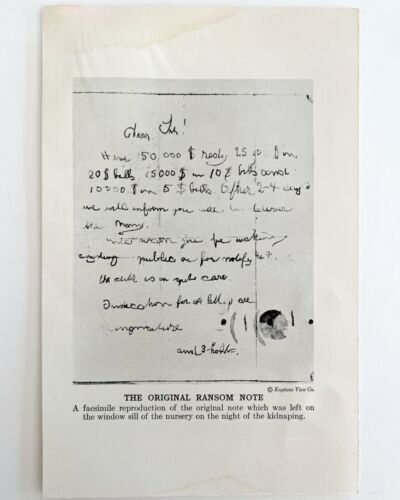 Dear Sir!
Have 50,000 $ redy 25 000 $ in
20 $ bills 15000 $ in 10 $ bills and
10000 $ in 5 $ bills After 2-4 days
we will inform you were to deliver
the Mony.
We warn you for making
anyding public or for notify the
the child is in gute care.
Indication for all letters are
singnature
and 3 holds.
© Keystone View Co.
THE ORIGINAL RANSOM NOTE
A facsimile reproduction of the original note which was left on
the window sill of the nursery on the night of the kidnaping.